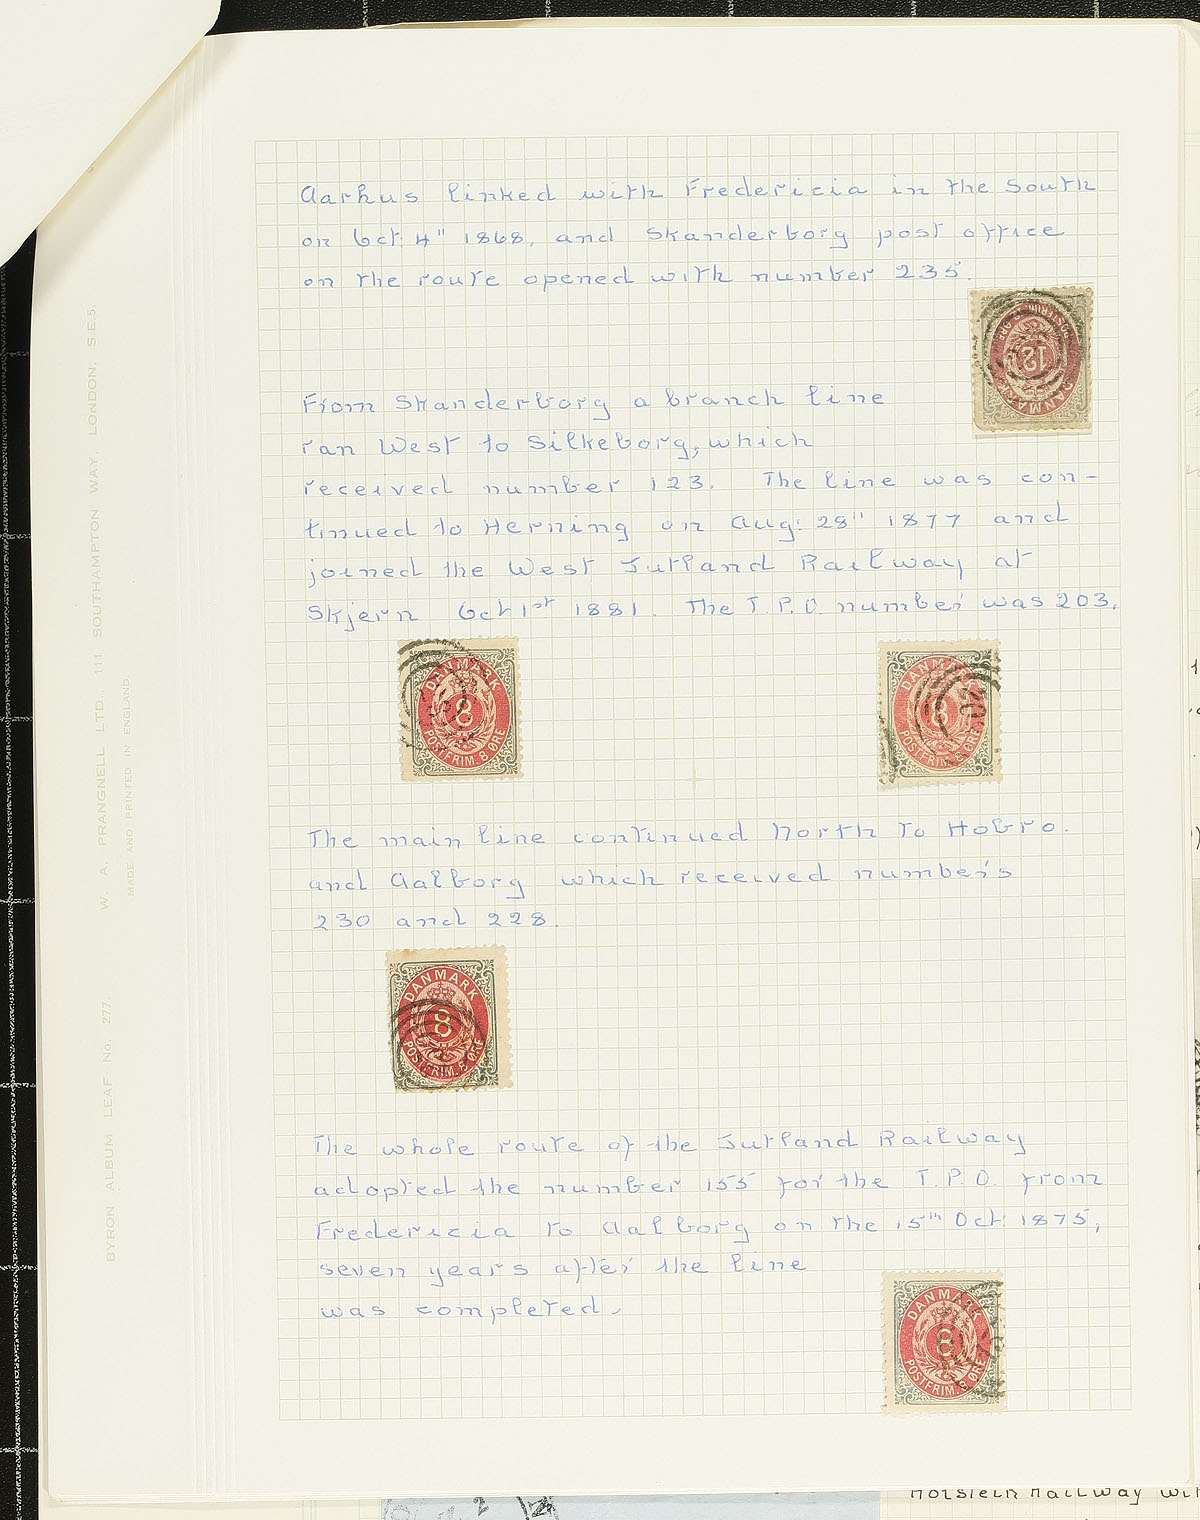 Aarhus linked with Fredericia in the South
on Oct: 4" 1868, and Skanderborg post office
on the route opened with number 235.
From Skanderborg a branch line
ran West to Silkeborg, which
received number 123. The line was con-
tinued to Herning on Aug: 28" 1877 and
joined the West Jutland Railway at
Skjern Oct 1st 1881. The T.P.O. number was 203.
DANMARK
8
POSTFRIM. 8 ØRE
DANMARK
8
POSTFRIM. 8 ØRE
The main line continued North to Hobro.
and Aalborg which received numbers
230 and 228.
DANMARK
8
POSTFRIM. 8 ØRE
The whole route of the Jutland Railway
adopted the number 155 for the T.P.O. from
Fredericia to Aalborg on the 15th Oct: 1875,
seven years after the line
was completed.
DANMARK
8
POSTFRIM. 8 ØRE
DANMARK
12
POSTFRIM.
BYRON ALBUM LEAF No. 277. W. A. PRANGNELL LTD., 111 SOUTHAMPTON WAY, LONDON, S.E.5.
MADE AND PRINTED IN ENGLAND
Holstein Railway